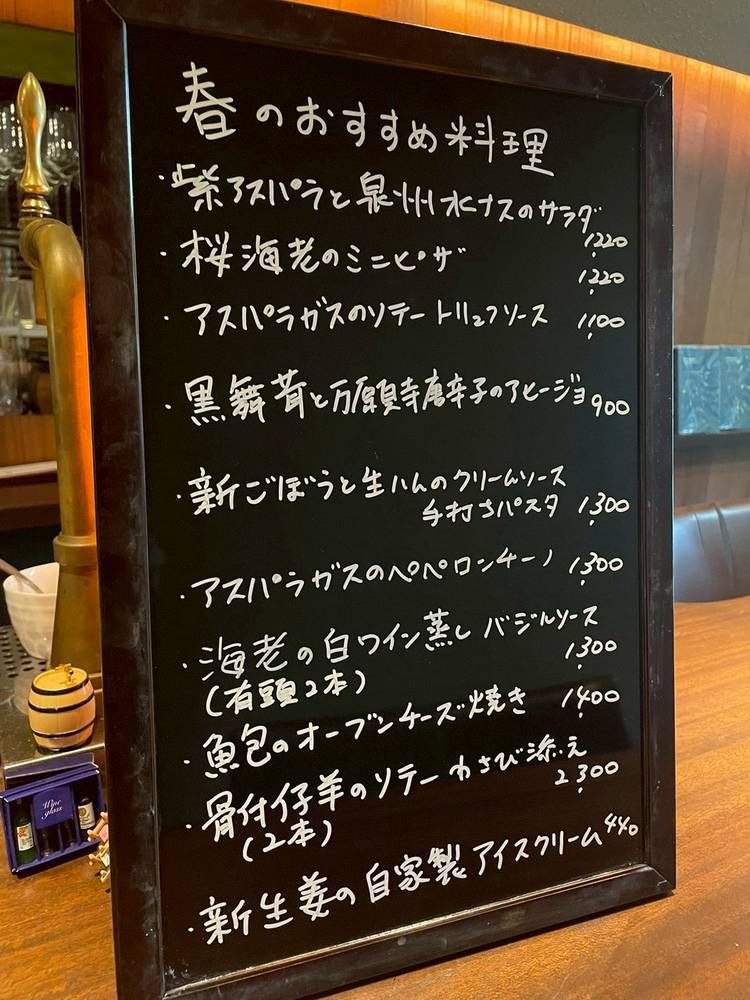 春のおすすめ料理
・紫アスパラと泉州水ナスのサラダ
1,220
・桜海老のミニピザ 1,220
・アスパラガスのソテー トリュフソース 1,100
・黒舞茸と万願寺唐辛子のアヒージョ 900
・新ごぼうと生ハムのクリームソース
手打ちパスタ 1,300
・アスパラガスのペペロンチーノ 1,300
・海老の白ワイン蒸し バジルソース
(有頭2本) 1,300
・魚包のオーブンチーズ焼き 1,400
・骨付仔羊のソテー わさび添え
(2本) 2,300
・新生姜の自家製アイスクリーム 440
Wine
glass